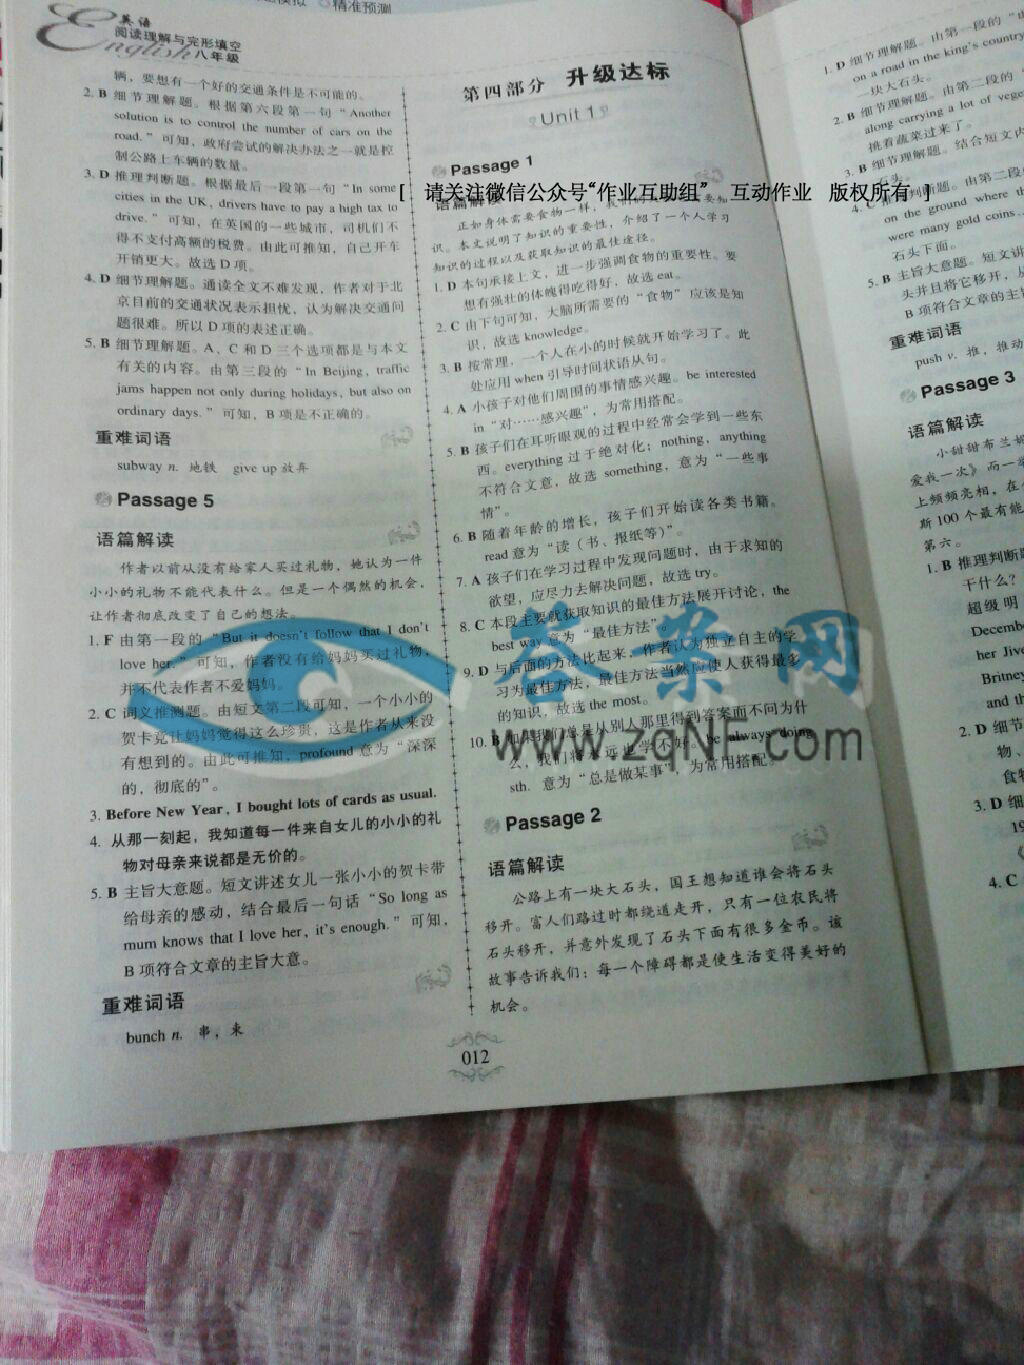 精准预测
英语
阅读理解与完形填空
English 八年级
辆，要想有一个好的交通条件是不可能的。
2. B 细节理解题。根据第六段第一句“Another
solution is to control the number of cars on the
road.”可知，政府尝试的解决办法之一就是控
制公路上车辆的数量。
3. D 推理判断题。根据最后一段第一句“In some
cities in the UK, drivers have to pay a high tax to
drive.”可知，在英国的一些城市，司机们不
得不支付高额的税费。由此可推知，自己开车
开销更大。故选 D 项。
4. D 细节理解题。通读全文不难发现，作者对于北
京目前的交通状况表示担忧，认为解决交通问
题很难。所以 D 项的表述正确。
5. B 细节理解题。A、C 和 D 三个选项都是与本文
有关的内容。由第三段的“In Beijing, traffic
jams happen not only during holidays, but also on
ordinary days.”可知，B 项是不正确的。
重难词语
subway n. 地铁 give up 放弃
Passage 5
语篇解读
作者以前从没有给家人买过礼物，她认为一件
小小的礼物不能代表什么。但是一个偶然的机会，
让作者彻底改变了自己的想法。
1. F 由第一段的“But it doesn't follow that I don't
love her.”可知，作者没有给妈妈买过礼物，
并不代表作者不爱妈妈。
2. C 词义推测题。由短文第二段可知，一个小小的
贺卡竟让妈妈觉得这么珍贵，这是作者从来没
有想到的。由此可推知，profound 意为“深深
的，彻底的”。
3. Before New Year, I bought lots of cards as usual.
4. 从那一刻起，我知道每一件来自女儿的小小的礼
物对母亲来说都是无价的。
5. B 主旨大意题。短文讲述女儿一张小小的贺卡带
给母亲的感动，结合最后一句话“So long as
mum knows that I love her, it's enough.”可知，
B 项符合文章的主旨大意。
重难词语
bunch n. 串，束
第四部分 升级达标
Unit 1
Passage 1
[ 请关注微信公众号“作业互助组” 互动作业 版权所有 ]
语篇解读
正如身体需要食物一样，我们的
识。本文说明了知识的重要性，介绍了一个人学习
知识的过程以及获取知识的最佳途径。
1. D 本句承接上文，进一步强调食物的重要性。要
想有强壮的体魄得吃得好，故选 eat。
2. C 由下句可知，大脑所需要的“食物”应该是知
识，故选 knowledge。
3. B 按常理，一个人在小的时候就开始学习了。此
处应用 when 引导时间状语从句。
4. A 小孩子对他们周围的事情感兴趣。be interested
in “对……感兴趣”，为常用搭配。
5. B 孩子们在耳听眼观的过程中经常会学到一些东
西。everything 过于绝对化；nothing，anything
不符合文意，故选 something，意为“一些事
情”。
6. B 随着年龄的增长，孩子们开始读各类书籍。
read 意为“读（书、报纸等）”。
7. A 孩子们在学习过程中发现问题时，由于求知的
欲望，应尽力去解决问题，故选 try。
8. C 本段主要就获取知识的最佳方法展开讨论，the
best way 意为“最佳方法”。
9. D 与后面的方法比起来，作者认为独立自主的学
习为最佳方法，最佳方法当然应使人获得最多
的知识，故选 the most。
10. B 如果我们总是从别人那里得到答案而不问为什
么，我们将永远也学不好。be always doing
sth. 意为“总是做某事”，为常用搭配。
答案网
www.zqNF.com
Passage 2
语篇解读
公路上有一块大石头，国王想知道谁会将石头
移开。富人们路过时都绕道走开，只有一位农民将
石头移开，并意外发现了石头下面有很多金币。该
故事告诉我们：每一个障碍都是使生活变得美好的
机会。
012
1. D 细节理解题。由第一段的
on a road in the king's country
一块大石头。
2. B 细节理解题。由第二段的
along carrying a lot of
挑着蔬菜过来了。
3. B 细节理解题。结合短文内
石头。
4. C 推理判断题。由第二段
on the ground where
were many gold coins
石头下面。
5. B 主旨大意题。短文讲
头并且将它移开，从
B 项符合文章的主
重难词语
push v. 推，推动
Passage 3
语篇解读
小甜甜布兰妮
爱我一次》而一
上频频亮相。在
斯 100 个最有能
第六。
1. B 推理判断题
干什么？
超级明
December
her Jive
Britney
and th
2. D 细节
物、
食物
3. D 细
19
4. C